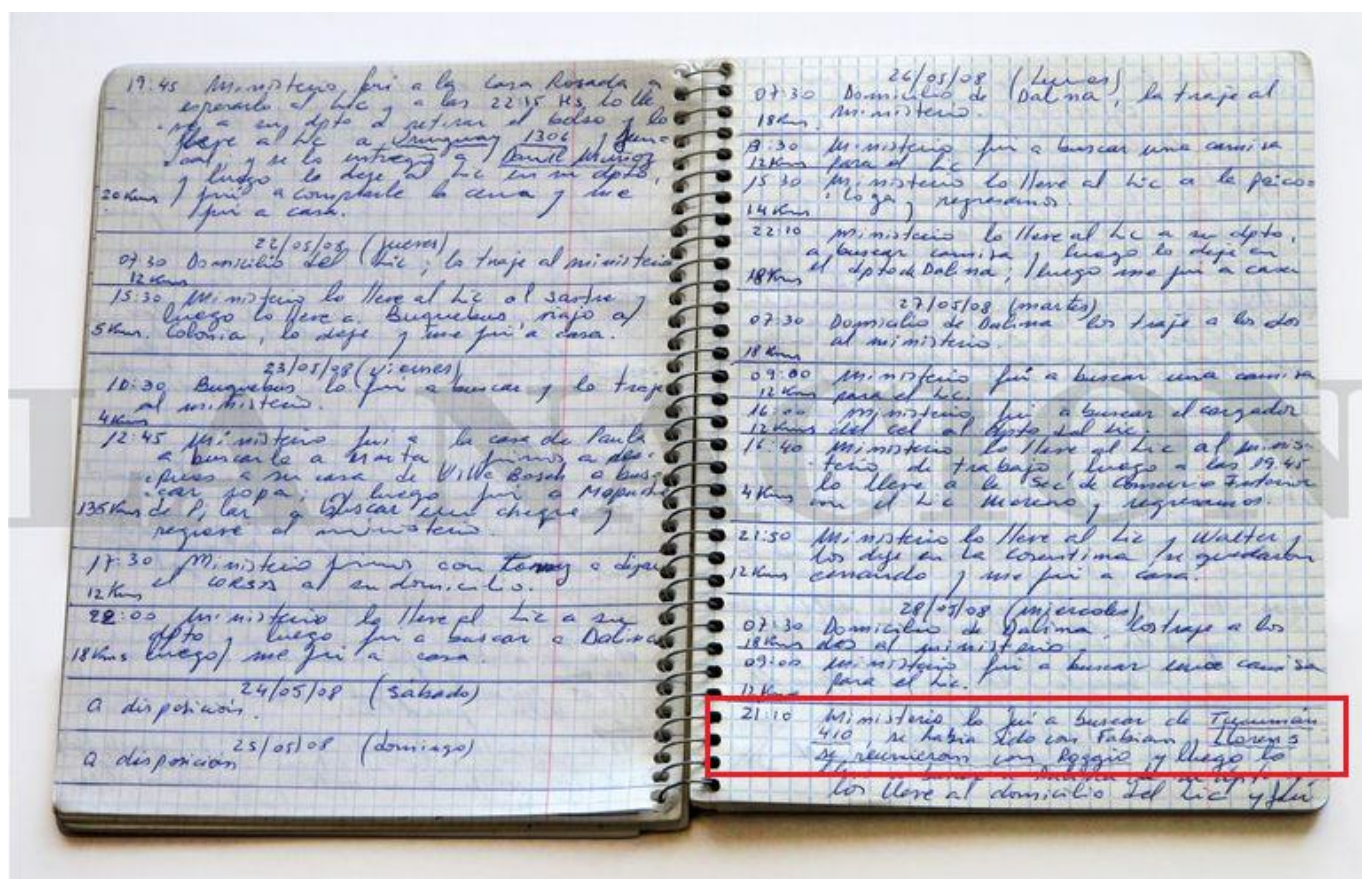 19:45 Ministerio, fui a la Casa Rosada a
esperarlo al Lic y a las 22:15 Hs, lo lle
a su dpto a retirar el bolso y lo
lleve al Lic a Uruguay 1306 y Jun
cal, y se lo entregó a Daniel Muñoz
y luego lo deje al Lic en su dpto,
20 Kms fui a comprarle la cena y me
fui a casa.
22/05/08 (jueves)
07:30 Domicilio del Lic; lo traje al ministerio
12 Kms
15:30 Ministerio lo lleve al Lic al sastre y
luego lo lleve a Buquebus, viajo a
5 Kms. Colonia, lo deje y me fui a casa.
23/05/08 (viernes)
10:30 Buquebus lo fui a buscar y lo traje
al ministerio.
4 Kms
12:45 Ministerio fui a la casa de Paula
a buscarla a Marta y fuimos a
a su casa de Villa Bosch a bus
car ropa; y luego fui a
135 Kms de Pilar a buscar un cheque y
regrese al ministerio.
17:30 Ministerio fuimos con Tomy a dejar
el CORSA al su domicilio.
12 Kms
22:00 Ministerio lo lleve al Lic a su
dpto y luego fui a buscar a Dalina
18 Kms luego me fui a casa.
24/05/08 (sábado)
a disposición.
25/05/08 (domingo)
a disposición
26/05/08 (Lunes)
07:30 Domicilio de (Dalina), la traje al
18 Kms. ministerio.
8:30 Ministerio fui a buscar una camisa
12 Kms para el Lic.
15:30 Ministerio lo lleve al Lic a la psico
loga y regresamos.
14 Kms
22:10 Ministerio lo lleve al Lic a su dpto,
a buscar camisa y luego lo deje en
18 Kms el dpto de Dalina; luego me fui a casa
27/05/08 (martes)
07:30 Domicilio de Dalina los traje a los dos
al ministerio.
18 Kms
09:00 Ministerio fui a buscar una camisa
12 Kms para el Lic.
16:00 Ministerio, fui a buscar el cargador
12 Kms del cel al dpto del Lic.
16:40 Ministerio lo lleve al Lic al minis
terio de trabajo, luego a las 19:45
lo lleve a la Sec de Comercio Interior
4 Kms con el Lic Moreno y regresamos.
21:50 Ministerio lo lleve al Lic y Walter,
los deje en la Cosentima se quedaron
12 Kms cenando y me fui a casa.
28/05/08 (miercoles)
07:30 Domicilio de Dalina, los traje a los
18 Kms dos al ministerio.
09:00 Ministerio fui a buscar una camisa
para el Lic.
12 Kms
21:10 Ministerio lo fui a buscar de Tucumán
410, se habia ido con Fabian, Llorens
se reunieron con Roggio y luego lo
los lleve al domicilio del Lic y fui
LA NACION